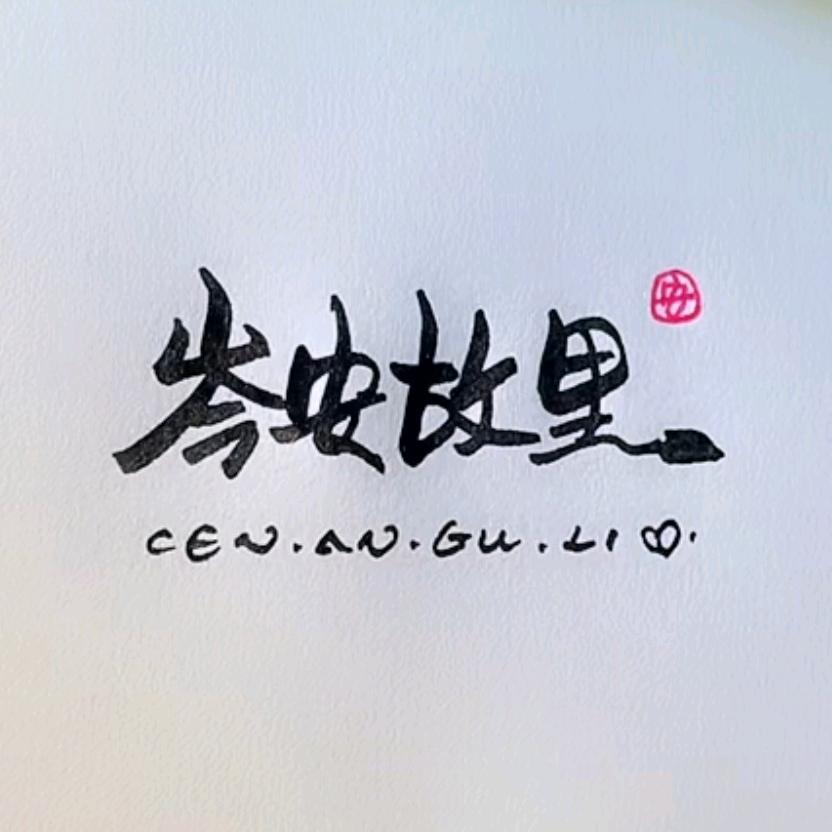 岑安故里
安
CEN.AN.GU.LI